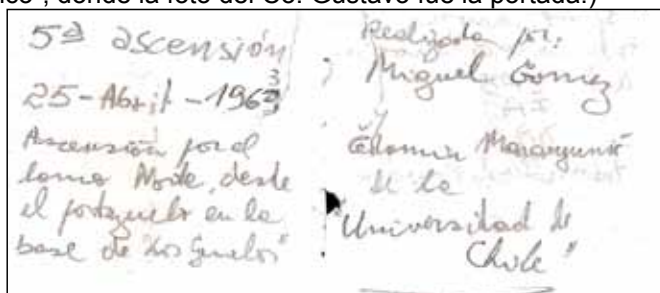 ", donde la foto del Co. Gustavo fue la portada.)
5ª ascensión
25-Abril-1963
Ascensión por el
lomo Norte, desde
el portezuelo en la
base de "Los Gemelos"
Realizada por:
Miguel Gomez
y
Cedomir Marangunic
de la
"Universidad de
Chile"